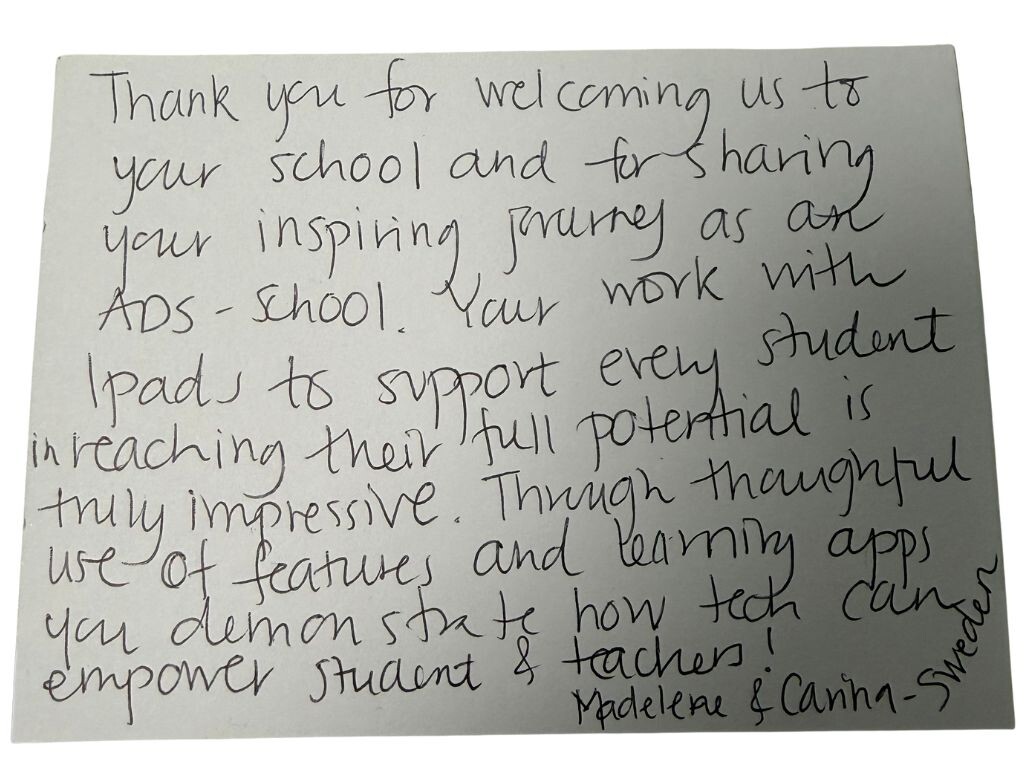 Thank you for welcoming us to
your school and for sharing
your inspiring journey as an
ADS-school. Your work with
Ipads to support every student
in reaching their full potential is
truly impressive. Through thoughtful
use of features and learning apps
you demonstrate how tech can
empower student & teachers!
Madelene & Carina-Sweden